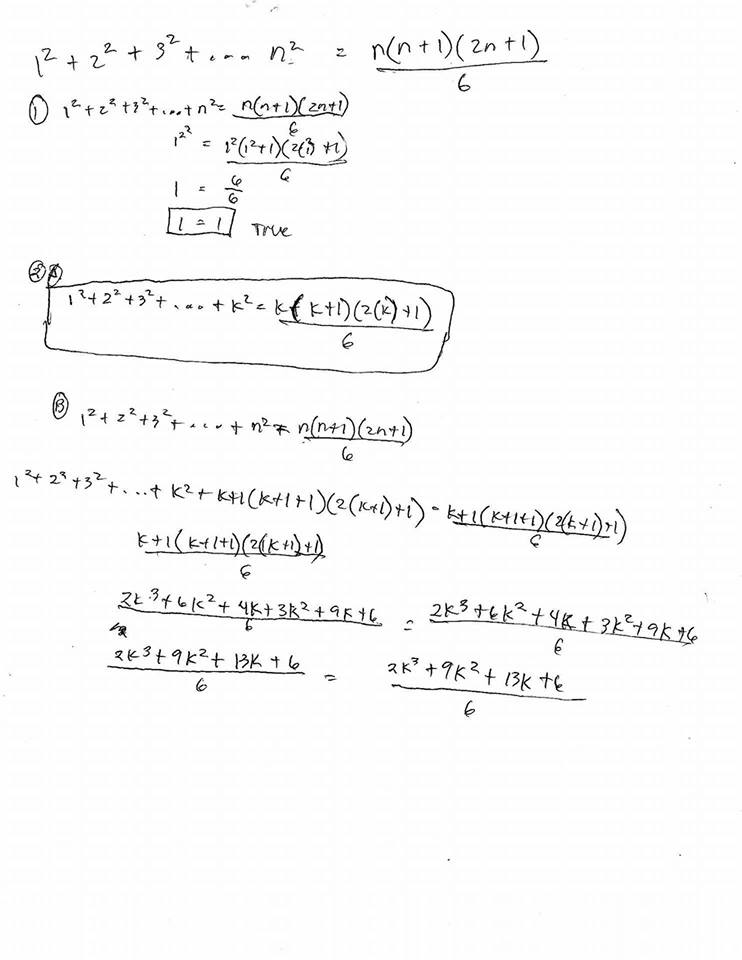 1² + 2² + 3² + .... n² = n(n+1)(2n+1)/6
① 1² + 2² + 3² + ... + n² = n(n+1)(2n+1)/6
1² = 1²(1²+1)(2(1)+1)/6
1 = 6/6
1 = 1 True
② A
1² + 2² + 3² + .... + k² = k(k+1)(2(k)+1)/6
Ⓑ 1² + 2² + 3² + .... + n² = n(n+1)(2n+1)/6
1² + 2² + 3² + ... + k² + k+1(k+1+1)(2(k+1)+1) = k+1(k+1+1)(2(k+1)+1)/6
k+1(k+1+1)(2(k+1)+1)/6
2k³+6k²+4k+3k²+9k+6/6 = 2k³+6k²+4k+3k²+9k+6/6
2k³+9k²+13k+6/6 = 2k³+9k²+13k+6/6